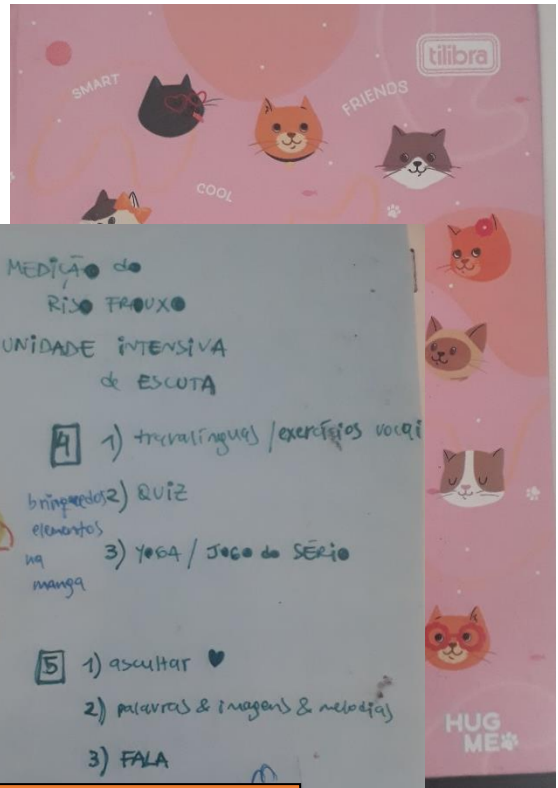 tilibra
SMART
FRIENDS
COOL
MEDIÇÃO do
RISO FROUXO
UNIDADE INTENSIVA
de ESCUTA
4 1) travalínguas / exercísios vocai
brinquedos
elementos
na
manga
2) QUIZ
3) YOGA / JOGO do SÉRIO
5 1) ascultar ♥
2) palavras & imagens & melodias
3) FALA
HUG
ME